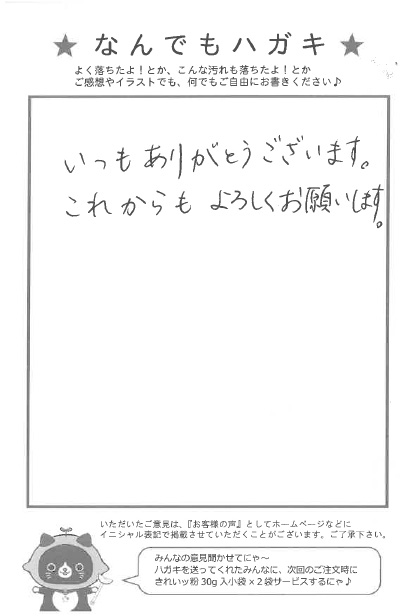 ★ なんでもハガキ ★
よく落ちたよ！とか、こんな汚れも落ちたよ！とか
ご感想やイラストでも、何でもご自由にお書きください♪
いつもありがとうございます。
これからも よろしくお願いします。
いただいたご意見は、『お客様の声』としてホームページなどに
イニシャル表記で掲載させていただくことがございます。ご了承下さい。
みんなの意見聞かせてにゃ～
ハガキを送ってくれたみんなに、次回のご注文時に
きれいッ粉 30g 入小袋 x 2 袋サービスするにゃ♪